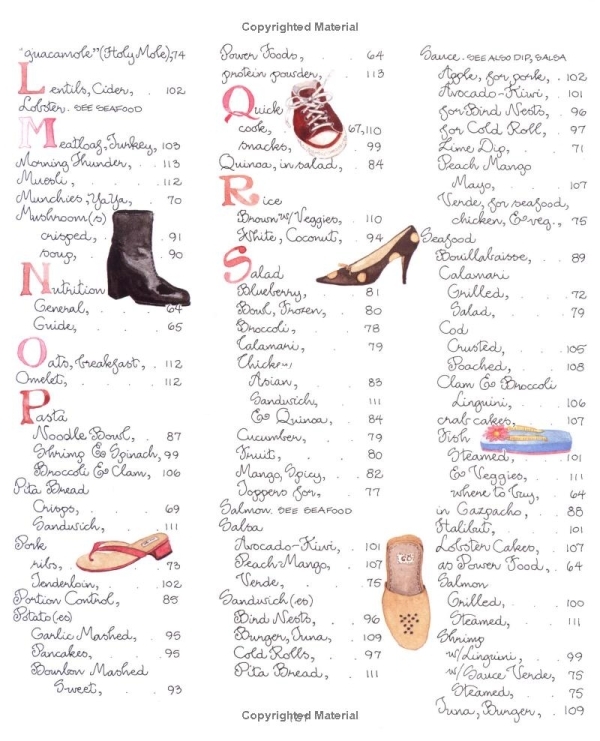 Copyrighted Material
"guacamole" (Holy Mole), 74
Lentils, Cider, . 102
Lobster. SEE SEAFOOD
Meatloaf, Turkey, 103
Morning Thunder, . 113
Muesli, . . 112
Munchies, YaYa, . 70
Mushroom(s)
crisped, . . 91
soup, . . 90
Nutrition
General, . . 64
Guide, . . 65
Oats, breakfast, . 112
Omelet, . . 112
Pasta
Noodle Bowl, . 87
Shrimp & Spinach, 99
Broccoli & Clam, 106
Pita Bread
Crisps, . . 69
Sandwich, . . 111
Pork
ribs, . . 73
Tenderloin, . . 102
Portion Control, 85
Potato(es)
Garlic Mashed, . 95
Pancakes, . . 95
Bourbon Mashed
Sweet, . . 93
Power Foods, . . 64
protein powder, . 113
Quick
cook, 67,110
snacks, . . 99
Quinoa, in salad, . 84
Rice
Brown w/ Veggies, . 110
White, Coconut, . 94
Salad
Blueberry, . . 81
Bowl, Frozen, . 80
Broccoli, . . 78
Calamari, . . 79
Chicken
Asian, . . 83
Sandwich, . 111
& Quinoa, . 84
Cucumber, . . 79
Fruit, . . 80
Mango, Spicy, . 82
Toppers for, . . 77
Salmon. SEE SEAFOOD
Salsa
Avocado-Kiwi, . 101
Peach Mango, . 107
Verde, . . 75
Sandwich(es)
Bird Nests, . . 96
Burger, Tuna, . 109
Cold Rolls, . . 97
Pita Bread, . . 111
Sauce. SEE ALSO DIP, SALSA
Apple, for pork, . 102
Avocado-Kiwi, . 101
for Bird Nests, . 96
for Cold Roll, . 97
Lime Dip, . . 71
Peach Mango
Mayo, . . 107
Verde, for seafood,
chicken, & veg., 75
Seafood
Bouillabaisse, . 89
Calamari
Grilled, . . 72
Salad, . . 79
Cod
Crusted, . . 105
Poached, . . 108
Clam & Broccoli
Linguini, . . 106
crab cakes, . . 107
Fish
Steamed, . . 101
& Veggies, . . 111
where to buy, . 64
in Gazpacho, . 88
Halibut, . . 101
Lobster Cakes, . 107
as Power Food, . 64
Salmon
Grilled, . . 100
Steamed, . . 111
Shrimp
w/ Linguini, . . 99
w/ Sauce Verde, 75
Steamed, . . 75
Tuna, Burger, . 109
Copyrighted Material